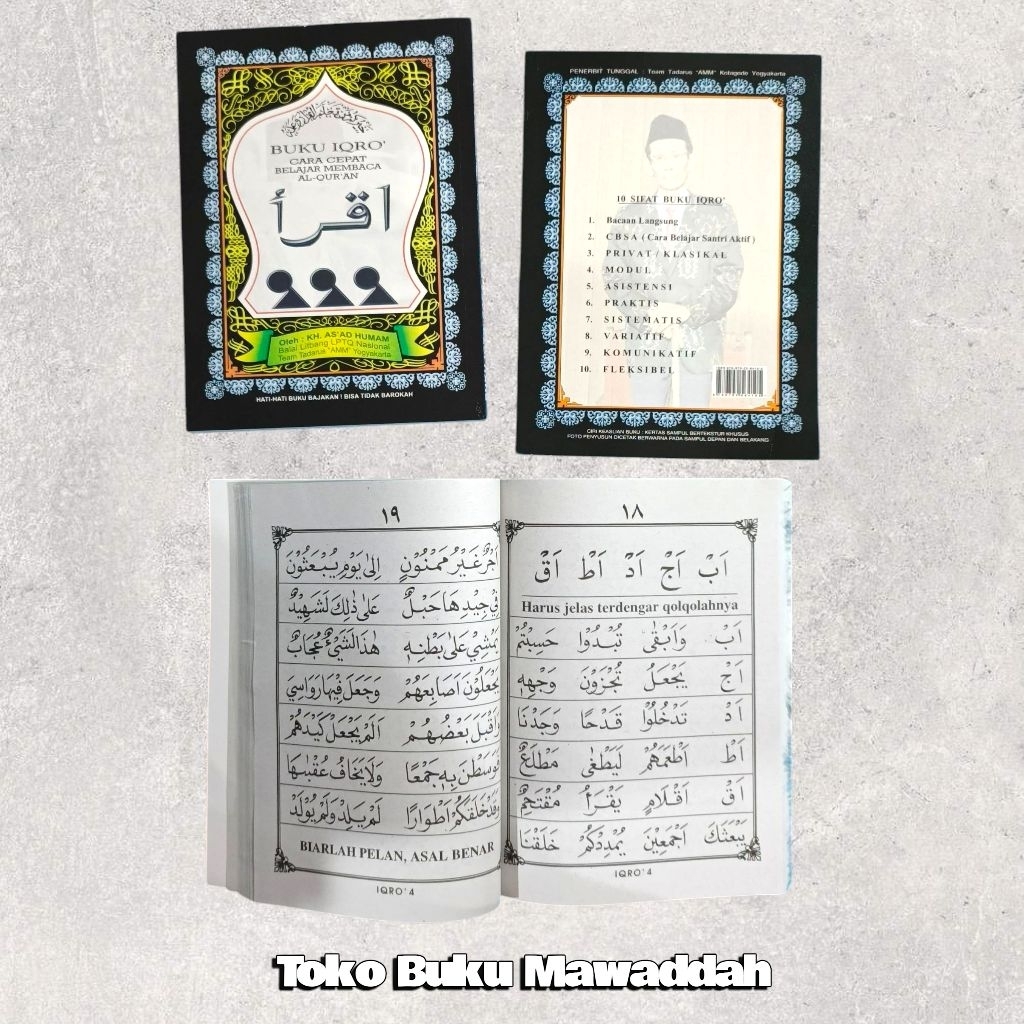 BUKU IQRO'
CARA CEPAT
BELAJAR MEMBACA
AL-QUR'AN
اقرأ
Oleh : KH. AS'AD HUMAM
Balai Litbang LPTQ Nasional
Team Tadarus "AMM" Yogyakarta
HATI-HATI BUKU BAJAKAN ! BISA TIDAK BAROKAH
PENERBIT TUNGGAL : Team Tadarus "AMM" Kotagede Yogyakarta
10 SIFAT BUKU IQRO'
1. Bacaan Langsung
2. C B S A ( Cara Belajar Santri Aktif )
3. PRIVAT / KLASIKAL
4. MODUL
5. ASISTENSI
6. PRAKTIS
7. SISTEMATIS
8. VARIATIF
9. KOMUNIKATIF
10. FLEKSIBEL
CIRI KEASLIAN BUKU : KERTAS SAMPUL BERTEKSTUR KHUSUS
FOTO PENYUSUN DICETAK BERWARNA PADA SAMPUL DEPAN DAN BELAKANG
١٨
اَبْ اَجْ اَدْ اَطْ اَقْ
Harus jelas terdengar qolqolahnya
اَبْ وَاَبْقٰى تُبْدُوْا حَسِبْتُمْ
اَجْ يَجْعَلُ تُجْزَوْنَ وَجْهِهٖ
اَدْ تَدْخُلُوْا قَدْحًا وَجَدْنَا
اَطْ اَطْعَمَهُمْ لَيَطْغٰى مَطْلَعٌ
اَقْ اَقْلَامٍ يَقْرَأُ مُقْتَحِمٌ
يَبْعَثَكَ اَجْمَعِيْنَ يُمْدِدْكُمْ خَلَقْنَا
IQRO' 4
١٩
اَجْرٌ غَيْرُ مَمْنُوْنٍ اِلٰى يَوْمِ يُبْعَثُوْنَ
فِيْ جِيْدِهَا حَبْلٌ عَلٰى ذٰلِكَ لَشَهِيْدٌ
يَمْشِيْ عَلٰى بَطْنِهٖ هٰذَا لَشَيْءٌ عُجَابٌ
يَجْعَلُوْنَ اَصَابِعَهُمْ وَجَعَلَ فِيْهَا رَوَاسِيَ
وَاَقْبَلَ بَعْضُهُمْ اَلَمْ يَجْعَلْ كَيْدَهُمْ
فَوَسَطْنَ بِهٖ جَمْعًا وَلَا يَخَافُ عُقْبٰهَا
وَقَدْ خَلَقَكُمْ اَطْوَارًا لَمْ يَلِدْ وَلَمْ يُوْلَدْ
BIARLAH PELAN, ASAL BENAR
IQRO' 4
Toko Buku Mawaddah